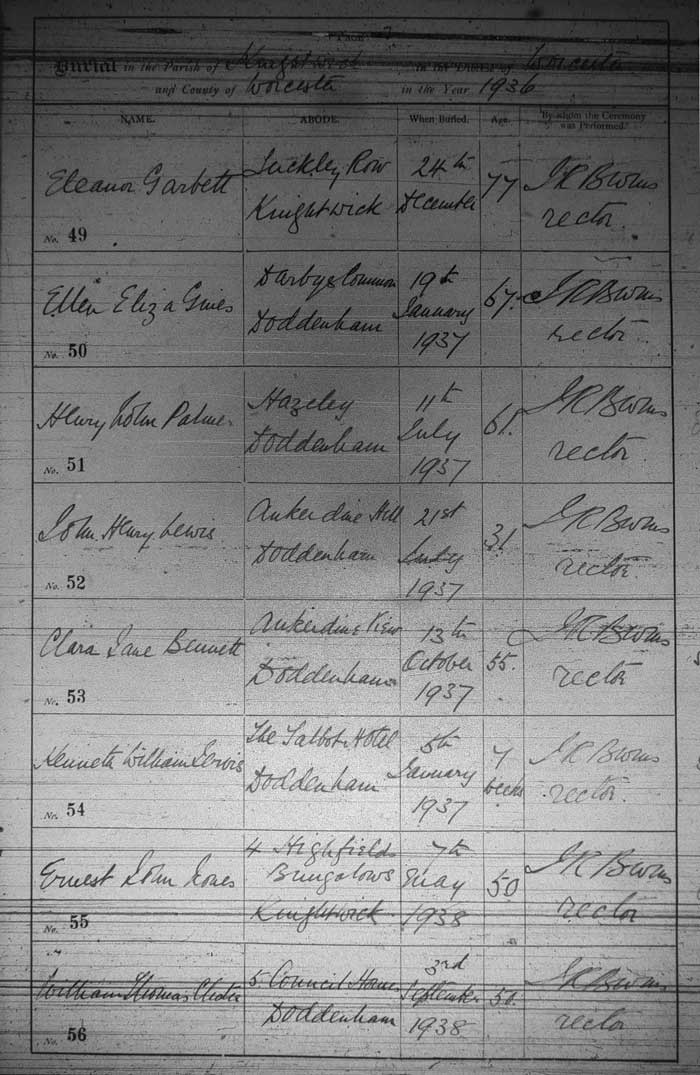 Page 7
Burial in the Parish of Knightwick in the Diocese of Worcester
and County of Worcester in the Year 1936
NAME. ABODE. When Buried. Age. By whom the Ceremony was Performed.
Eleanor Garbett
No. 49
Suckley Row
Knightwick
24th
December
77
rector.
Ellen Eliza
No. 50
Darbys Common
Doddenham
19th
January
1937
67.
rector.
Henry John Palmer
No. 51
Hazeley
Doddenham
11th
July
1937
61.
rector.
John Henry Lewis
No. 52
Ankerdine Hill
Doddenham
21st
July
1937
31
rector.
Clara Jane Bennett
No. 53
Ankerdine View
Doddenham
13th
October
1937
55.
rector
Kenneth William
No. 54
The Talbot Hotel
Doddenham
5th
January
1937
7
weeks
rector.
Ernest John Jones
No. 55
4 Highfields
Bungalows
Knightwick
7th
May
1938
50
rector
William Thomas
No. 56
5 Council Houses
Doddenham
3rd
September
1938
50.
rector